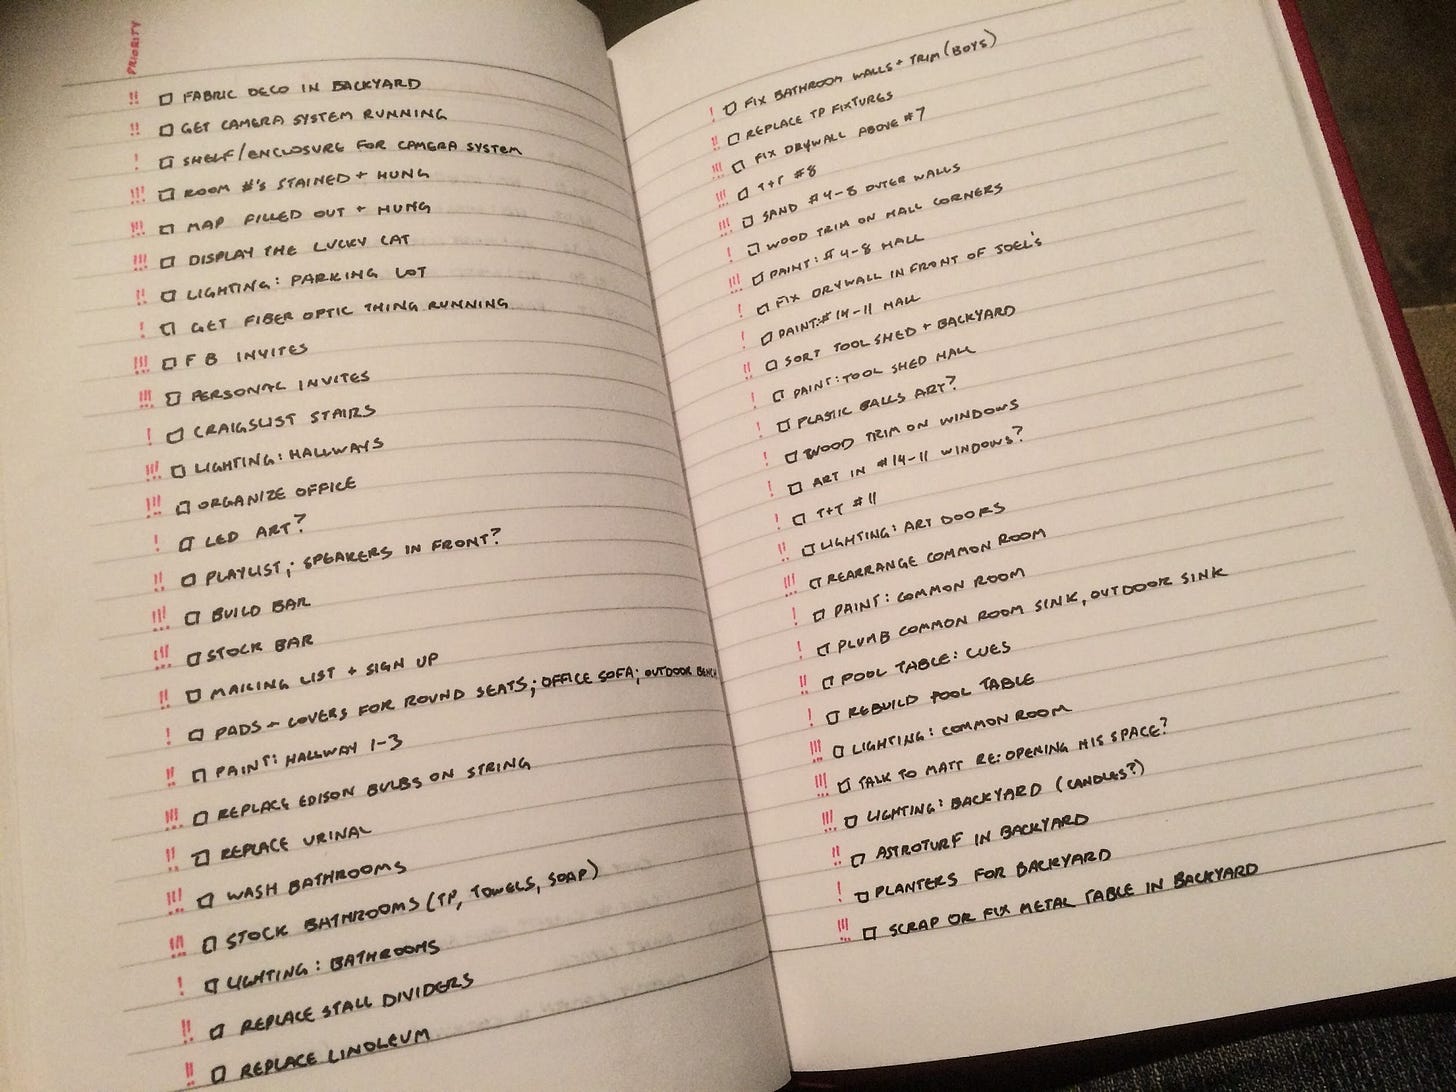 PRIORITY
!! ☐ FABRIC DECO IN BACKYARD
!! ☐ GET CAMERA SYSTEM RUNNING
! ☐ SHELF/ENCLOSURE FOR CAMERA SYSTEM
!!! ☐ ROOM #'S STAINED + HUNG
!!! ☐ MAP FILLED OUT + HUNG
!!! ☐ DISPLAY THE LUCKY CAT
!! ☐ LIGHTING: PARKING LOT
! ☐ GET FIBER OPTIC THING RUNNING
!!! ☐ FB INVITES
!!! ☐ PERSONAL INVITES
! ☐ CRAIGSLIST STAIRS
!!! ☐ LIGHTING: HALLWAYS
!!! ☐ ORGANIZE OFFICE
! ☐ LED ART?
!! ☐ PLAYLIST; SPEAKERS IN FRONT?
!!! ☐ BUILD BAR
!!! ☐ STOCK BAR
!! ☐ MAILING LIST + SIGN UP
! ☐ PADS + COVERS FOR ROUND SEATS; OFFICE SOFA; OUTDOOR BENCH
!! ☐ PAINT: HALLWAY 1-3
!!! ☐ REPLACE EDISON BULBS ON STRING
!! ☐ REPLACE URINAL
!!! ☐ WASH BATHROOMS
!!! ☐ STOCK BATHROOMS (TP, TOWELS, SOAP)
! ☐ LIGHTING: BATHROOMS
!! ☐ REPLACE STALL DIVIDERS
!! ☐ REPLACE LINOLEUM
! ☐ FIX BATHROOM WALLS + TRIM (BOYS)
!! ☐ REPLACE TP FIXTURES
!!! ☐ FIX DRYWALL ABOVE #7
!!! ☐ T+T #8
!!! ☐ SAND #4-8 OUTER WALLS
! ☐ WOOD TRIM ON HALL CORNERS
!!! ☐ PAINT: #4-8 HALL
! ☐ FIX DRYWALL IN FRONT OF JOEL'S
! ☐ PAINT: #14-11 HALL
!! ☐ SORT TOOL SHED + BACKYARD
! ☐ PAINT: TOOL SHED HALL
! ☐ PLASTIC BALLS ART?
! ☐ WOOD TRIM ON WINDOWS
! ☐ ART IN #14-11 WINDOWS?
! ☐ T+T #11
!! ☐ LIGHTING: ART DOORS
!!! ☐ REARRANGE COMMON ROOM
! ☐ PAINT: COMMON ROOM
! ☐ PLUMB COMMON ROOM SINK, OUTDOOR SINK
!! ☐ POOL TABLE: CUES
! ☐ REBUILD POOL TABLE
!!! ☐ LIGHTING: COMMON ROOM
!!! ☐ TALK TO MATT RE: OPENING HIS SPACE?
!!! ☐ LIGHTING: BACKYARD (CANDLES?)
!! ☐ ASTROTURF IN BACKYARD
! ☐ PLANTERS FOR BACKYARD
!!! ☐ SCRAP OR FIX METAL TABLE IN BACKYARD